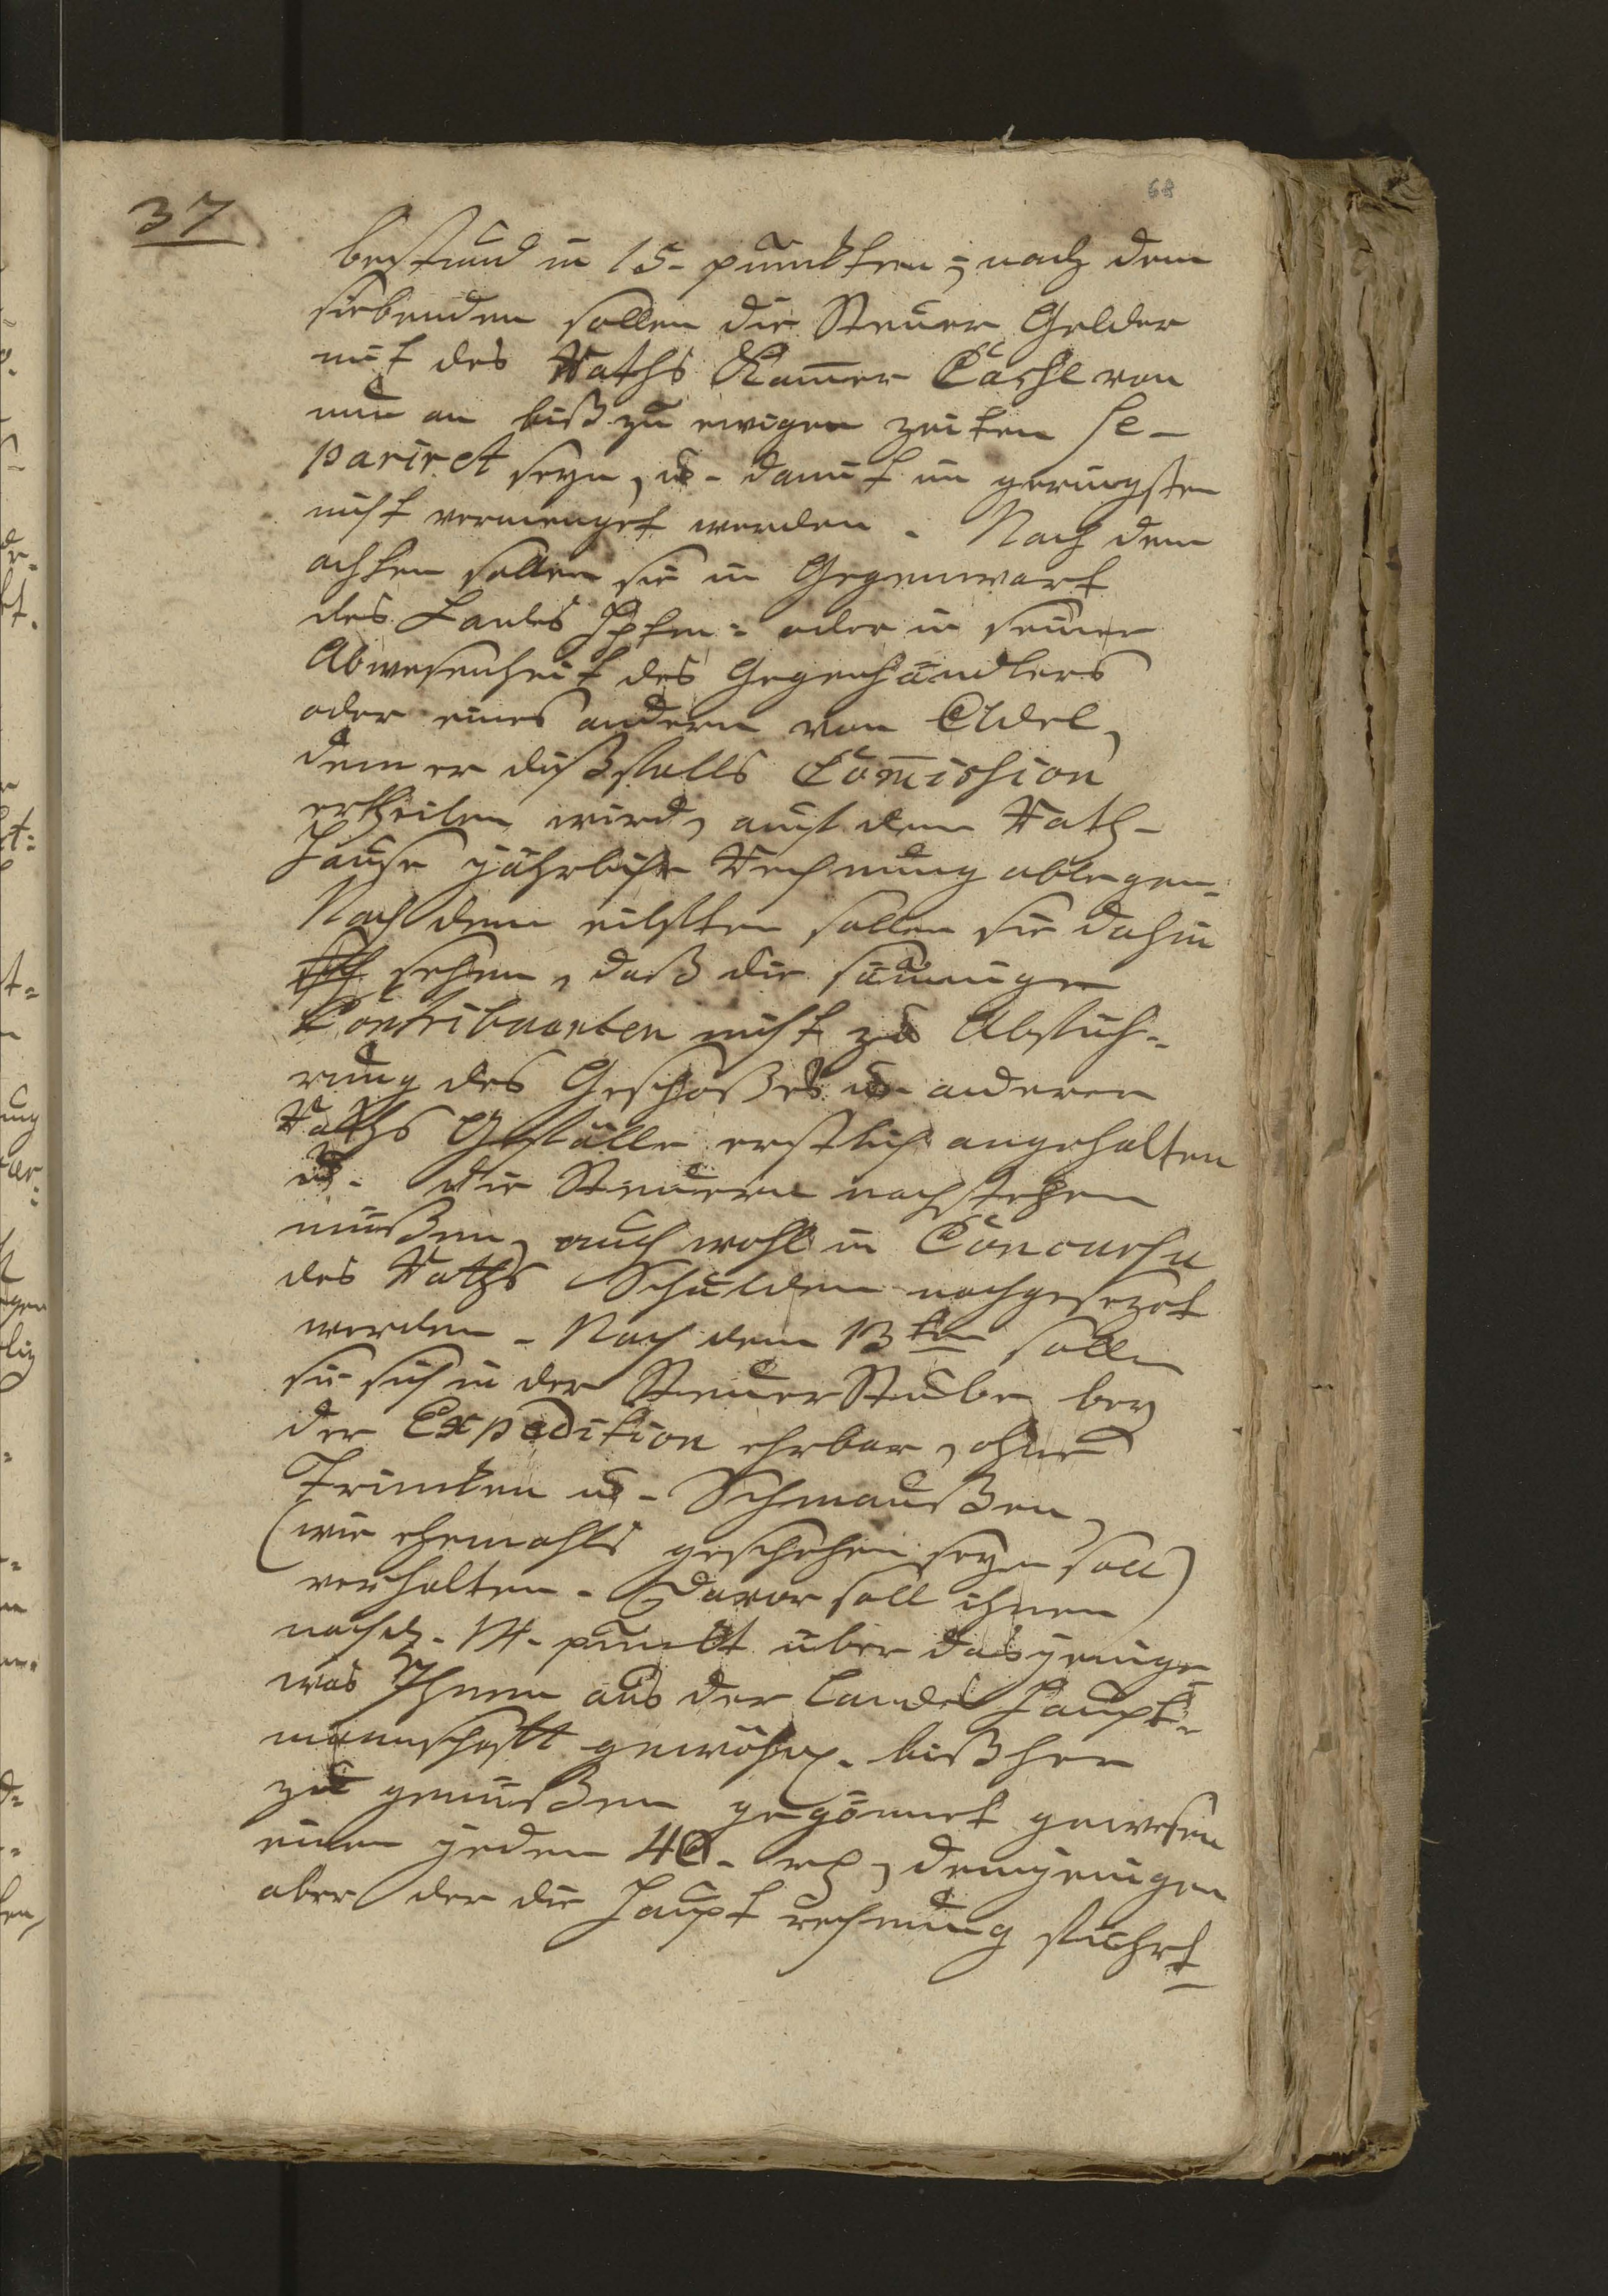 37
68
bestund in 15- punckten; nach dem
siebenden sollen die Steuer Gelder
mit des Raths Kam̄er Casse von
nun an biß zu ewigen zeiten se-
pariret seyn, u- damit im geringsten
nicht vermenget werden. Nach dem
achten sollen sie in Gegenwart
des Landes Hptm: oder in seiner
Abwesenheit des Gegenhändlers
oder eines andern von Adel,
dem er dißfalls Com̄ission
ertheilen wird, auf dem Rath-
Hause jährliche Rechnung ablegen.
Nach dem eilften sollen sie dahin
sehen, daß die säumigen
Contribuenten nicht zu Abfüh-
rung des Geschoßes u- anderer
Raths Gefälle erstlich angehalten
u. die Steuern nachstehen
müßen, auch wohl in Concursu
des Raths Schulden nachgesezet
werden. Nach dem 13ten sollen
sie sich in der Steuer Stube bey
der Expedition ehrbar, ohne
Trincken u- Schmaußen,
(wie ehemahls geschehen seyn soll)
verhalten. Davor soll ihnen
nach d. 14. punckt über dasjenige
was Ihnen aus der Landes Haupt-
mannschafft gewöhnl. bißher
zu genüßen gegönnet gewesen
einem jeden 40- rh, demjenigen
aber der die Haupt rechnung führt